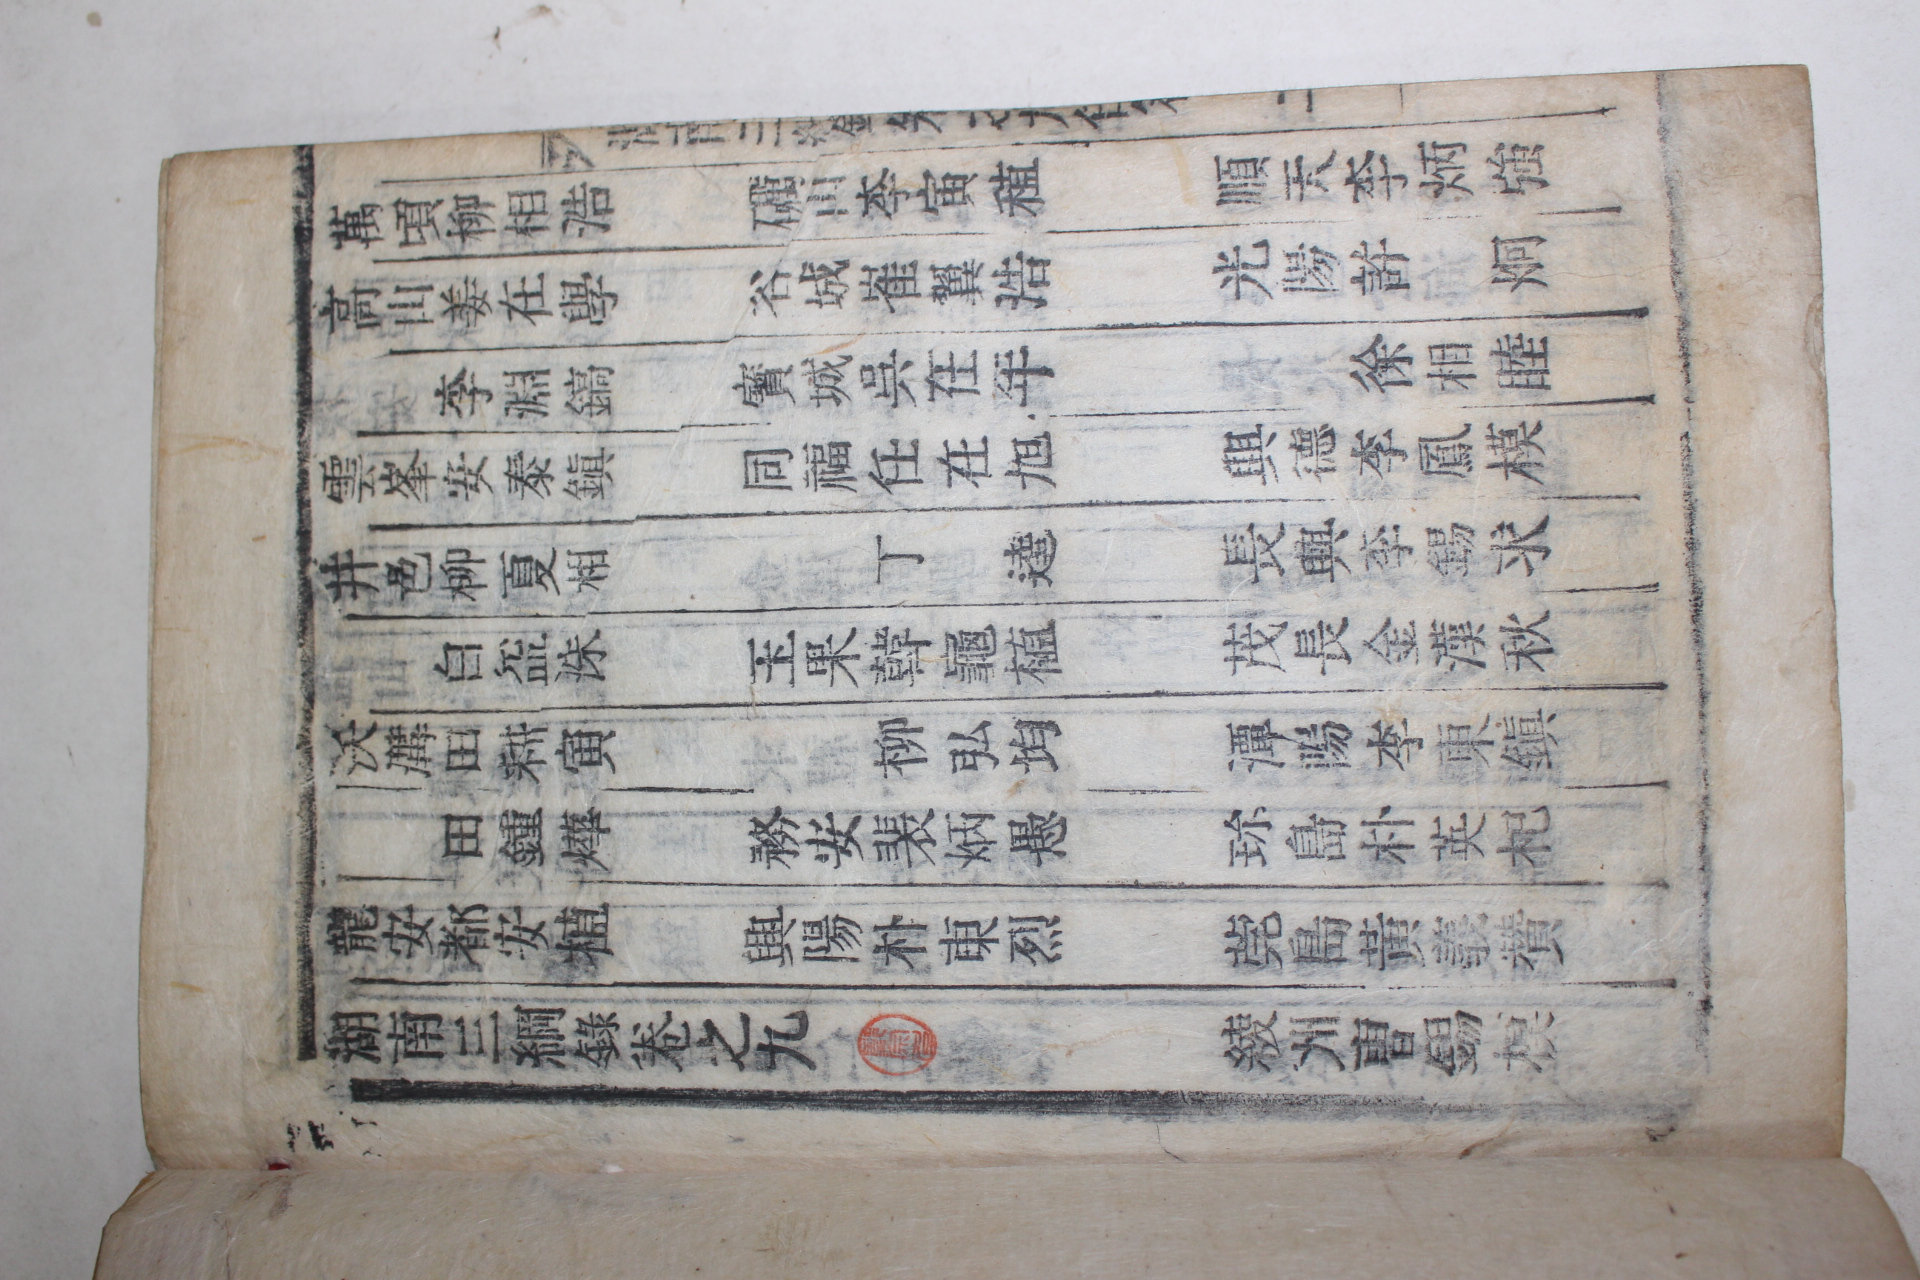 萬頃柳相浩 礪山李寅稙 順天李炳強
高山姜在學 谷城崔翼浩 光陽許炯
李淵鎬 寶城吳在年 徐相睦
雲峯安泰鎭 同福任在旭 興德李鳳模
井邑柳夏相 丁達 長興李錫求
白盆洙 玉果韓龜植 茂長金漢秋
沃溝田耕寅 柳弘均 潭陽李東鎭
田鍾燁 務安裴炳愚 珎島朴英杞
龍安都安植 興陽朴東烈 莞島黃義贊
湖南三綱錄卷之九 綾州曺錫模